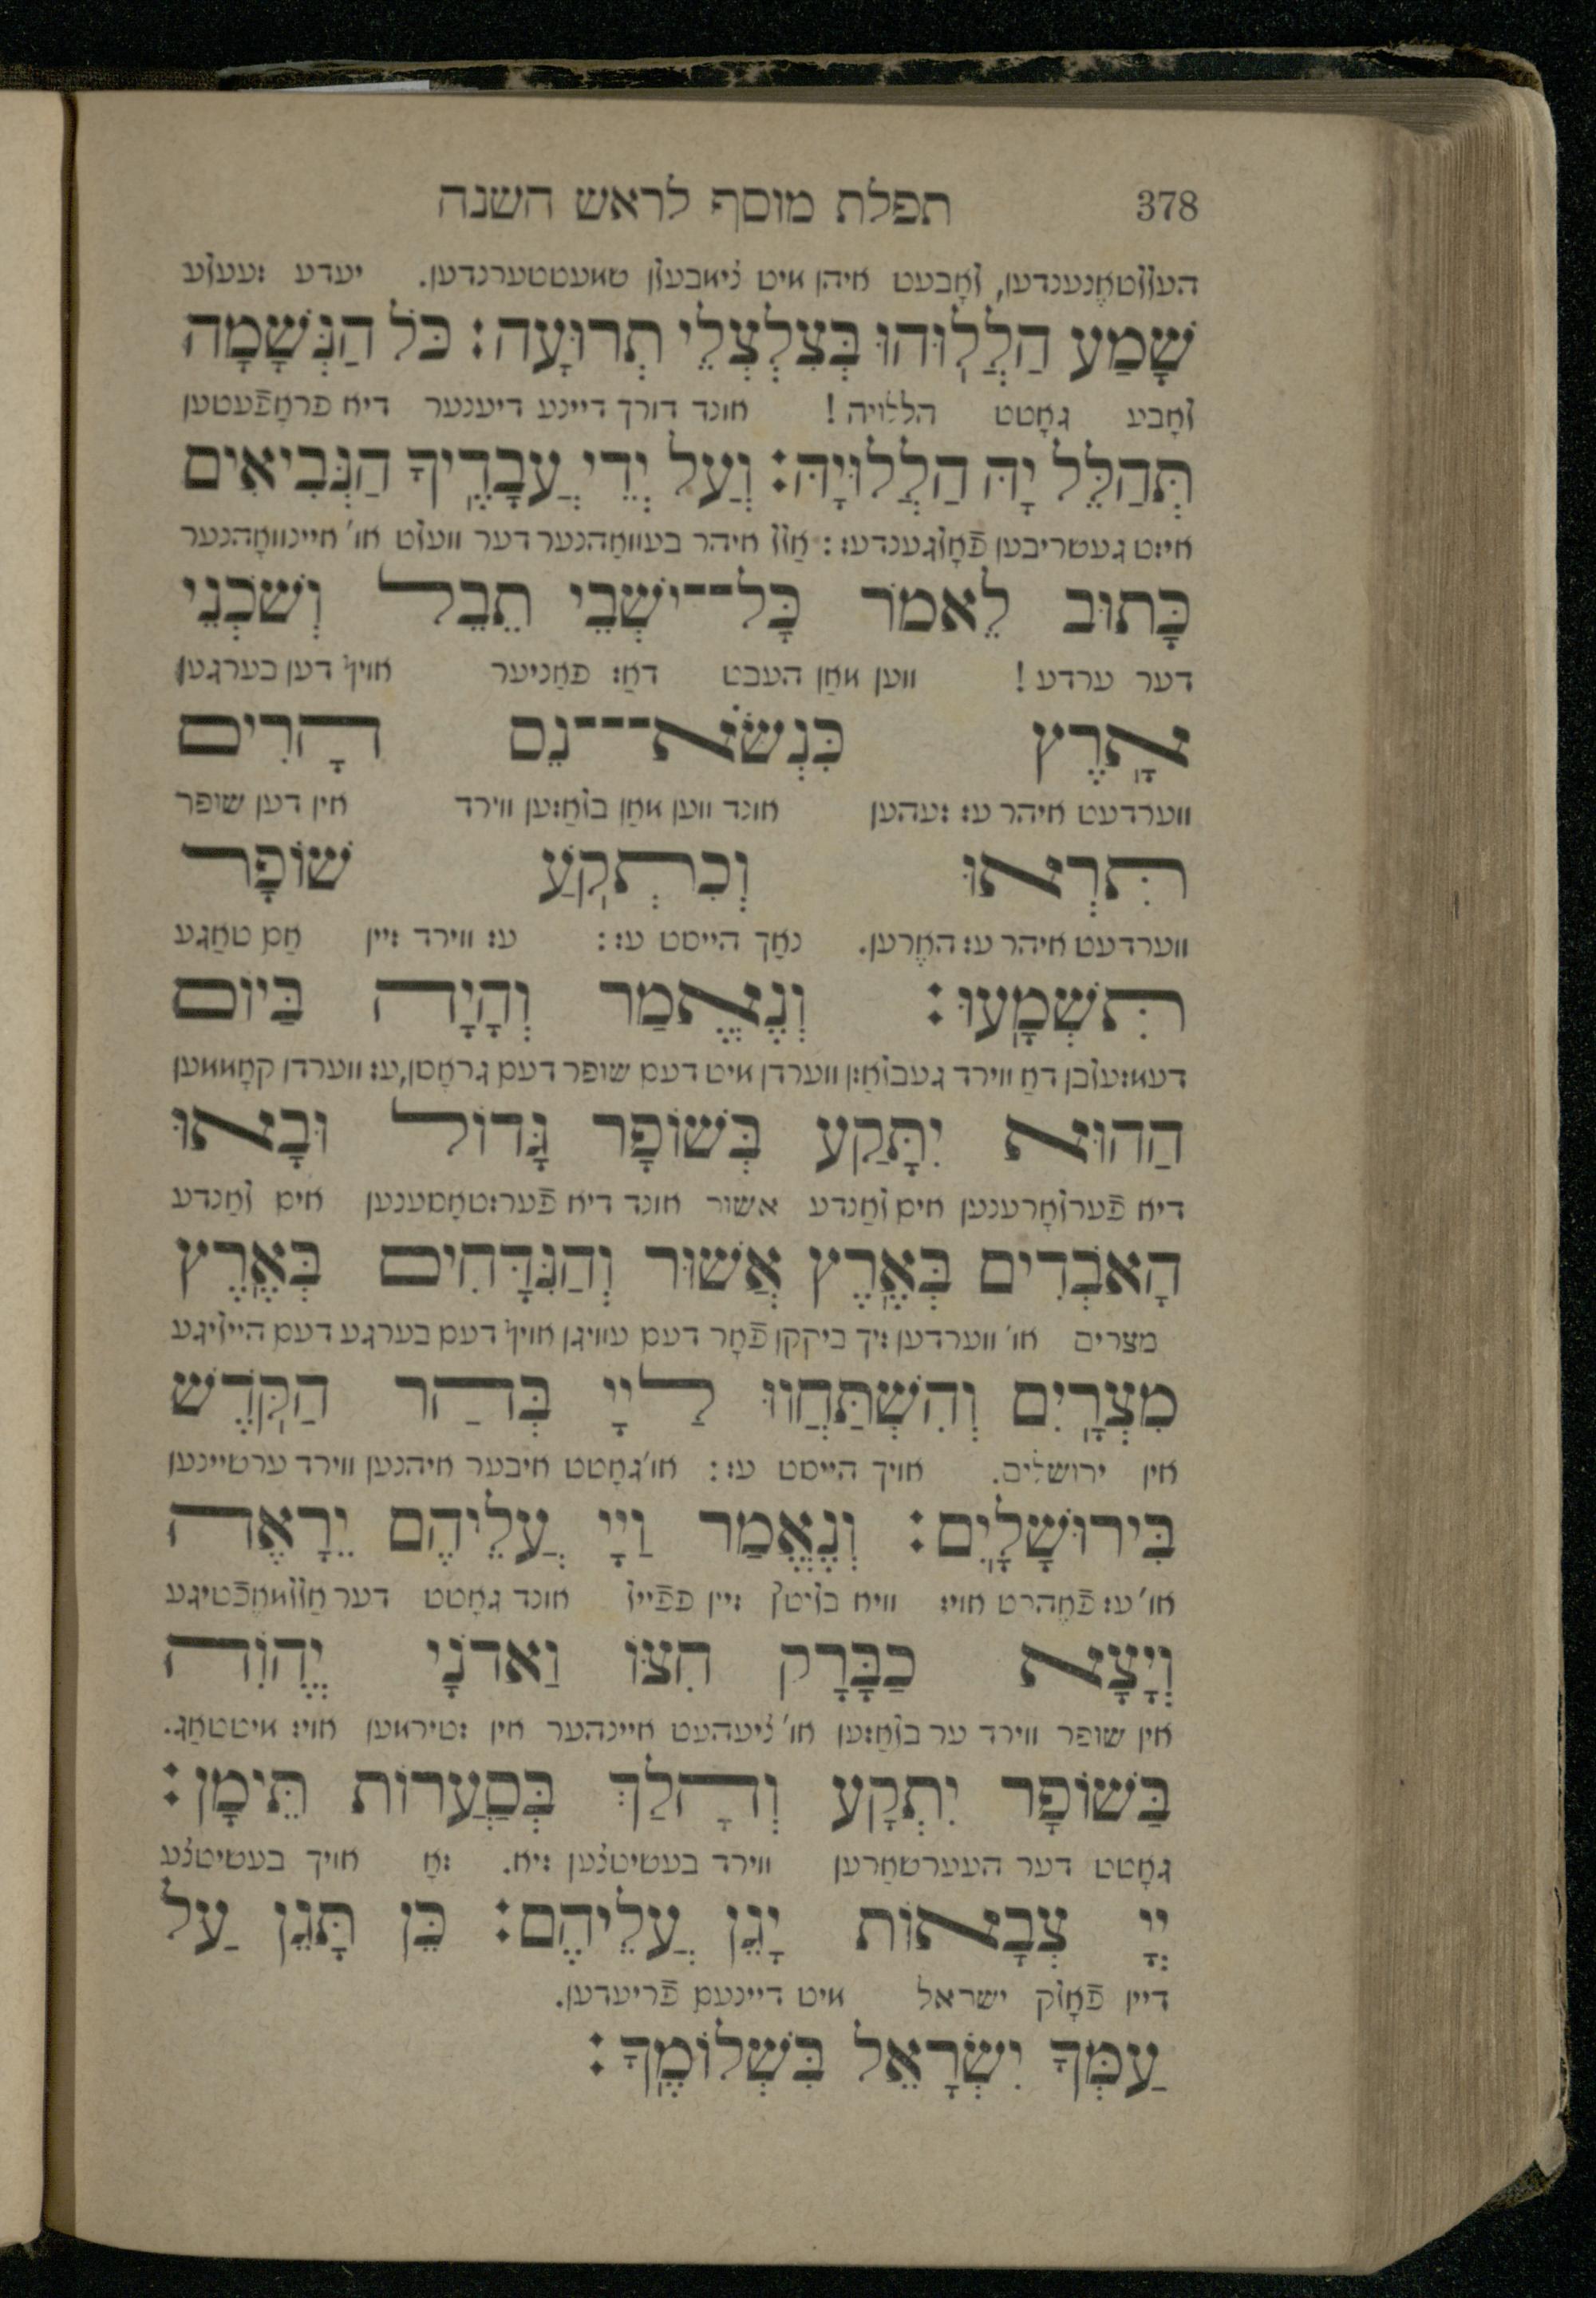 378 תפלת מוסף לראש השנה
העללטאָנענדען, לאָבעט איהן מיט ציאבעלן שמעטטערנדען. יעדע זעעלע
שָׁמַע הַלֲלֽוּהוּ בְּצִלְצְלֵי תְרוּעָה׃ כֹּל הַנְּשָׁמָה
לאָבע גאָטט הללויה! אונד דורך דיינע דיענער דיא פראָפֿעטען
תְּהַלֵּל יָהּ הַלֲלוּיָהּ׃ וְעַל יְדֵי עֲבָדֶֽיךָ הַנְּבִיאִים
איזט געשריבען פֿאָלגענדעז: אַלל איהר בעוואָהנער דער וועלט או' איינוואָהנער
כָּתוּב לֵאמֹר כָּל־־יֹשְׁבֵי תֵבֵל וְשֹׁכְנֵי
דער ערדע! ווען מאַן העבט דאַז פאַניער אויף דען בערגען
אָֽרֶץ כִּנְשֹׂא־־־נֵס הָרִים
ווערדעט איהר עז זעהען אונד ווען מאַן בלאָזען ווירד אין דען שופר
תִּרְאוּ וְכִתְקֹֽעַ שׁוֹפָר
ווערדעט איהר עז האָרען. נאָך הייסט עז: עז ווירד זיין אַם טאַגע
תִּשְׁמָֽעוּ׃ וְנֶאֱמַר וְהָיָה בַּיּוֹם
דעמזעלבן דאַ ווירד געבלאָזן ווערדן מיט דעם שופר דעם גראָסן, עז ווערדן קאָממען
הַהוּא יִתָּקַע בְּשׁוֹפָר גָּדוֹל וּבָאוּ
דיא פֿערלאָרענען אים לאַנדע אשור אונד דיא פֿערזטאָסענען אים לאַנדע
הָאֹבְדִים בְּאֶֽרֶץ אַשּׁוּר וְהַנִּדָּחִים בְּאֶֽרֶץ
מצרים או' ווערדען זיך ביקקן פֿאָר דעם עוויגן אויף דעם בערגע דעם היילִיגע
מִצְרָֽיִם וְהִשְׁתַּחֲווּ לַיְיָ בְּהַר הַקֹּֽדֶשׁ
אין ירושלים. אויך הייסט עז: או' גאָטט איבער איהנען ווירד ערשיינען
בִּירוּשָׁלָֽיִם׃ וְנֶאֱמַר וַיְיָ עֲלֵיהֶם יֵרָאֶה
או' עז פֿאָהרט אויז וויא בליטץ זיין פפֿייל אונד גאָטט דער אַללמאֶכֿטיגע
וְיָצָא כַבָּרָק חִצּוֹ וַאדֹנָי יֱהֹוִה
אין שופר ווירד ער בלאָזען או' ציעהעט איינהער אין זטירמען אויז מיטטאַג.
בַּשּׁוֹפָר יִתְקָע וְהָלַךְ בְּסַעֲרוֹת תֵּימָן׃
גאָטט דער העערשאַרען ווירד בעשיטצען זיא. זאָ אויך בעשיטצע
יְיָ צְבָאוֹת יָגֵן עֲלֵיהֶם׃ כֵּן תָּגֵן עַל
דיין פֿאָלק ישראל מיט דיינעם פֿריעדען.
עַמְּךָ יִשְׂרָאֵל בִּשְׁלוֹמֶֽךָ׃